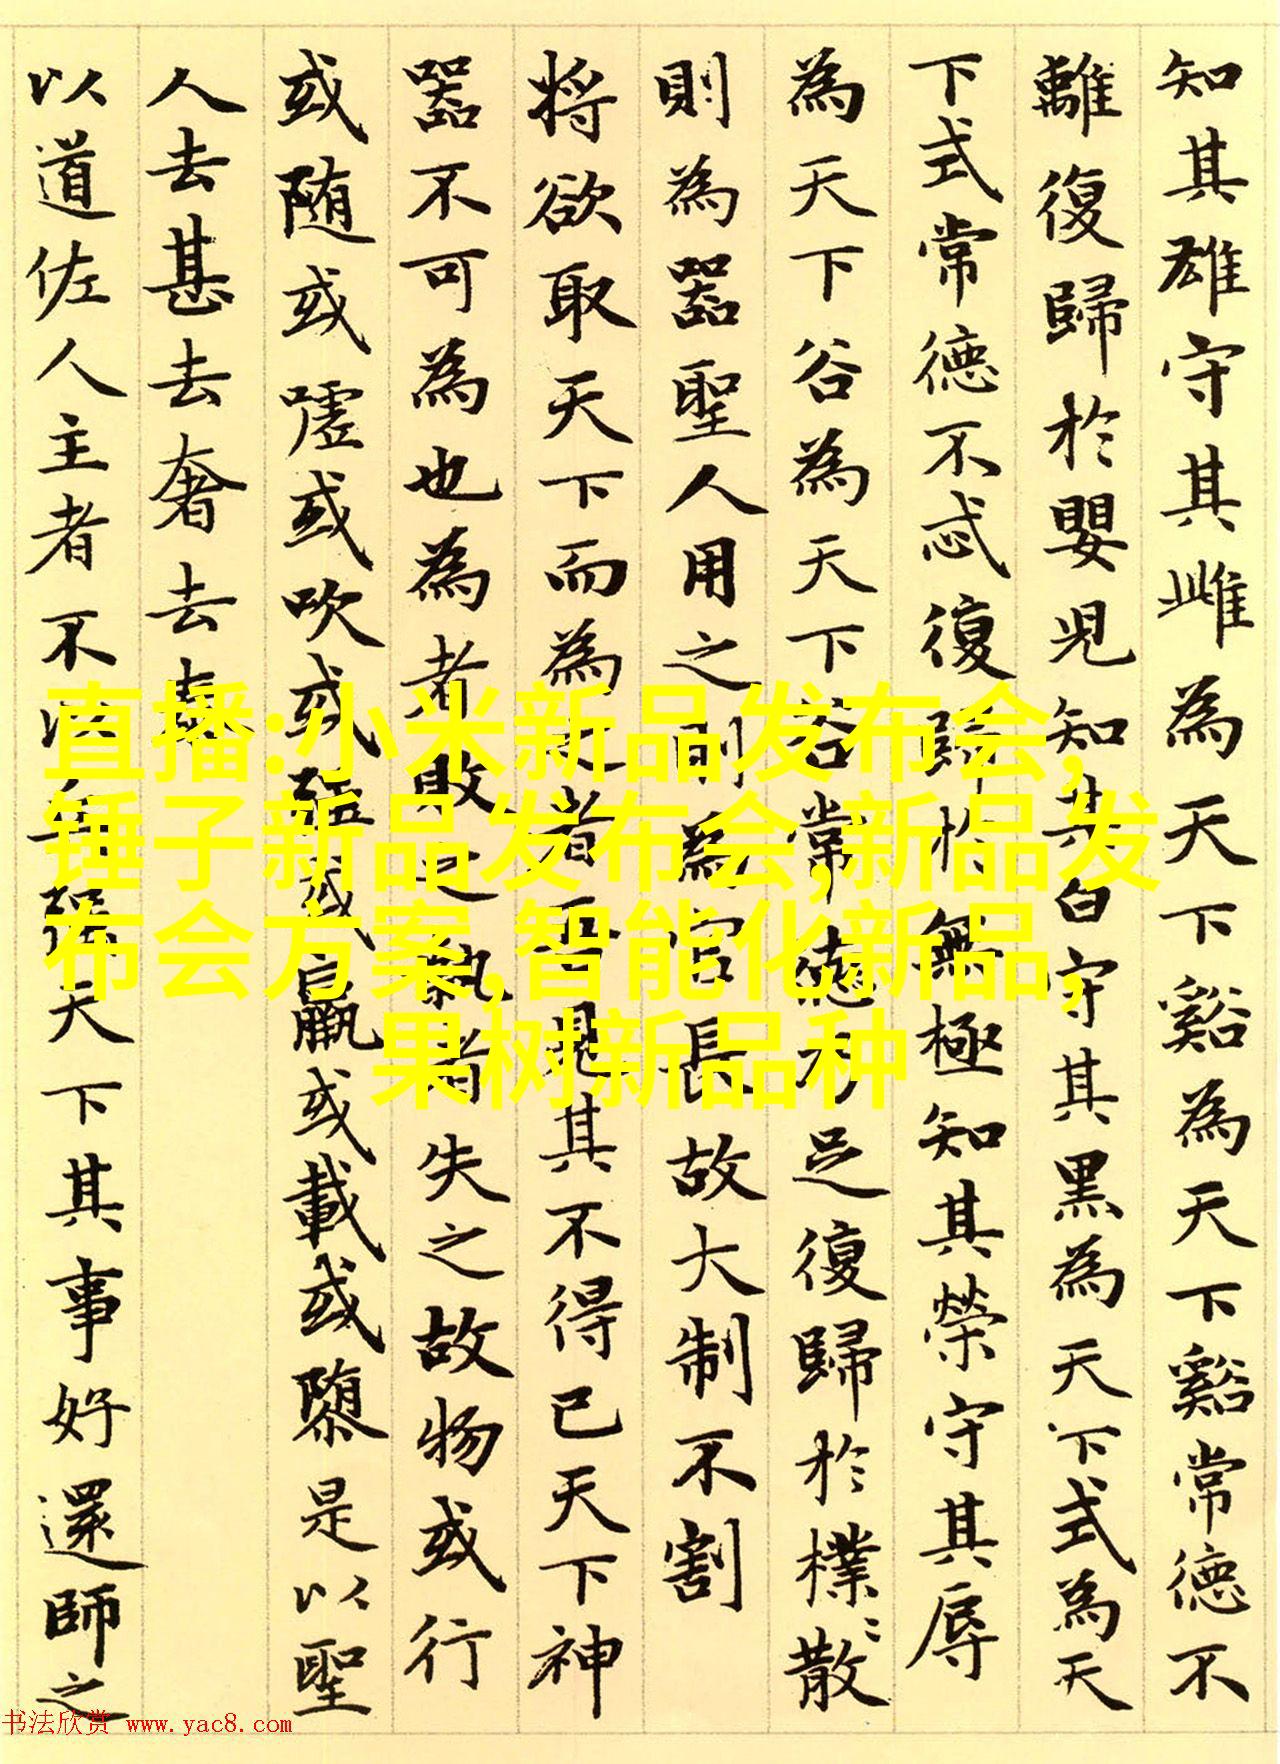 知其雄守其雌為天下谿為天下谿常德不
離復歸於嬰兒知其白守其黑為天下式為天
下式常德不忒復歸於無極知其榮守其辱
為天下谷為天下谷常德乃足復歸於樸〻散
則為器聖人用之則為官長故大制不割
将欲取天下而為之者吾見其不得已天下神
器不可為也為者敗之執者失之故物或行
或随或嘘或吹或强或羸或載或隳是以聖
人去甚去奢去泰
以道佐人主者不以兵强天下其事好還師之
直播:小米新品发布会,
锤子新品发布会,新品发
布会方案,智能化新品,
果树新品种
书法欣赏 www.yac8.com